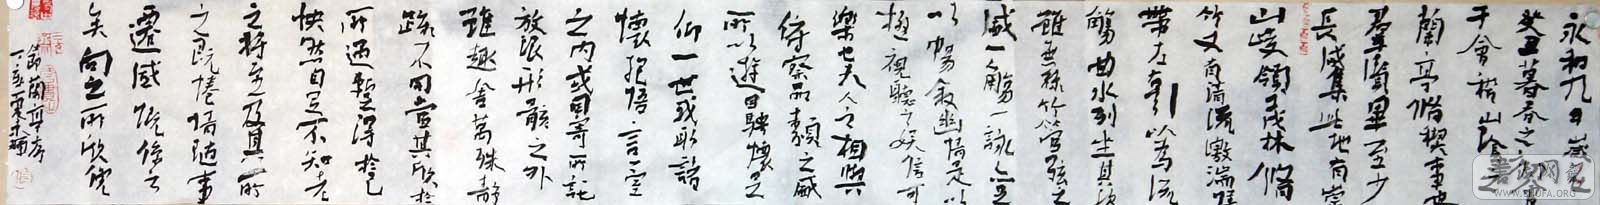 永和九年歲在
癸丑暮春之初
于會稽山陰
蘭亭脩禊事也
羣賢畢至少
長咸集此地有崇
山峻領茂林脩
竹又有清流激湍暎
帶左右引以為流
觴曲水列坐其次
雖無絲竹管弦之
盛一觴一詠亦足
以暢敘幽情足以
極視聽之娛信可
樂也夫人之相與
俯察品類之盛
所以遊目騁懷足
仰一世或取諸
懷抱悟言一室
之內或因寄所託
放浪形骸之外
雖趣舍萬殊靜
躁不同當其欣於
所遇暫得於己
怏然自足不知老
之將至及其所
之既惓情隨事
遷感慨係之
矣向之所欣俛
節蘭亭序
書法网
WWW.SHUFA.ORG